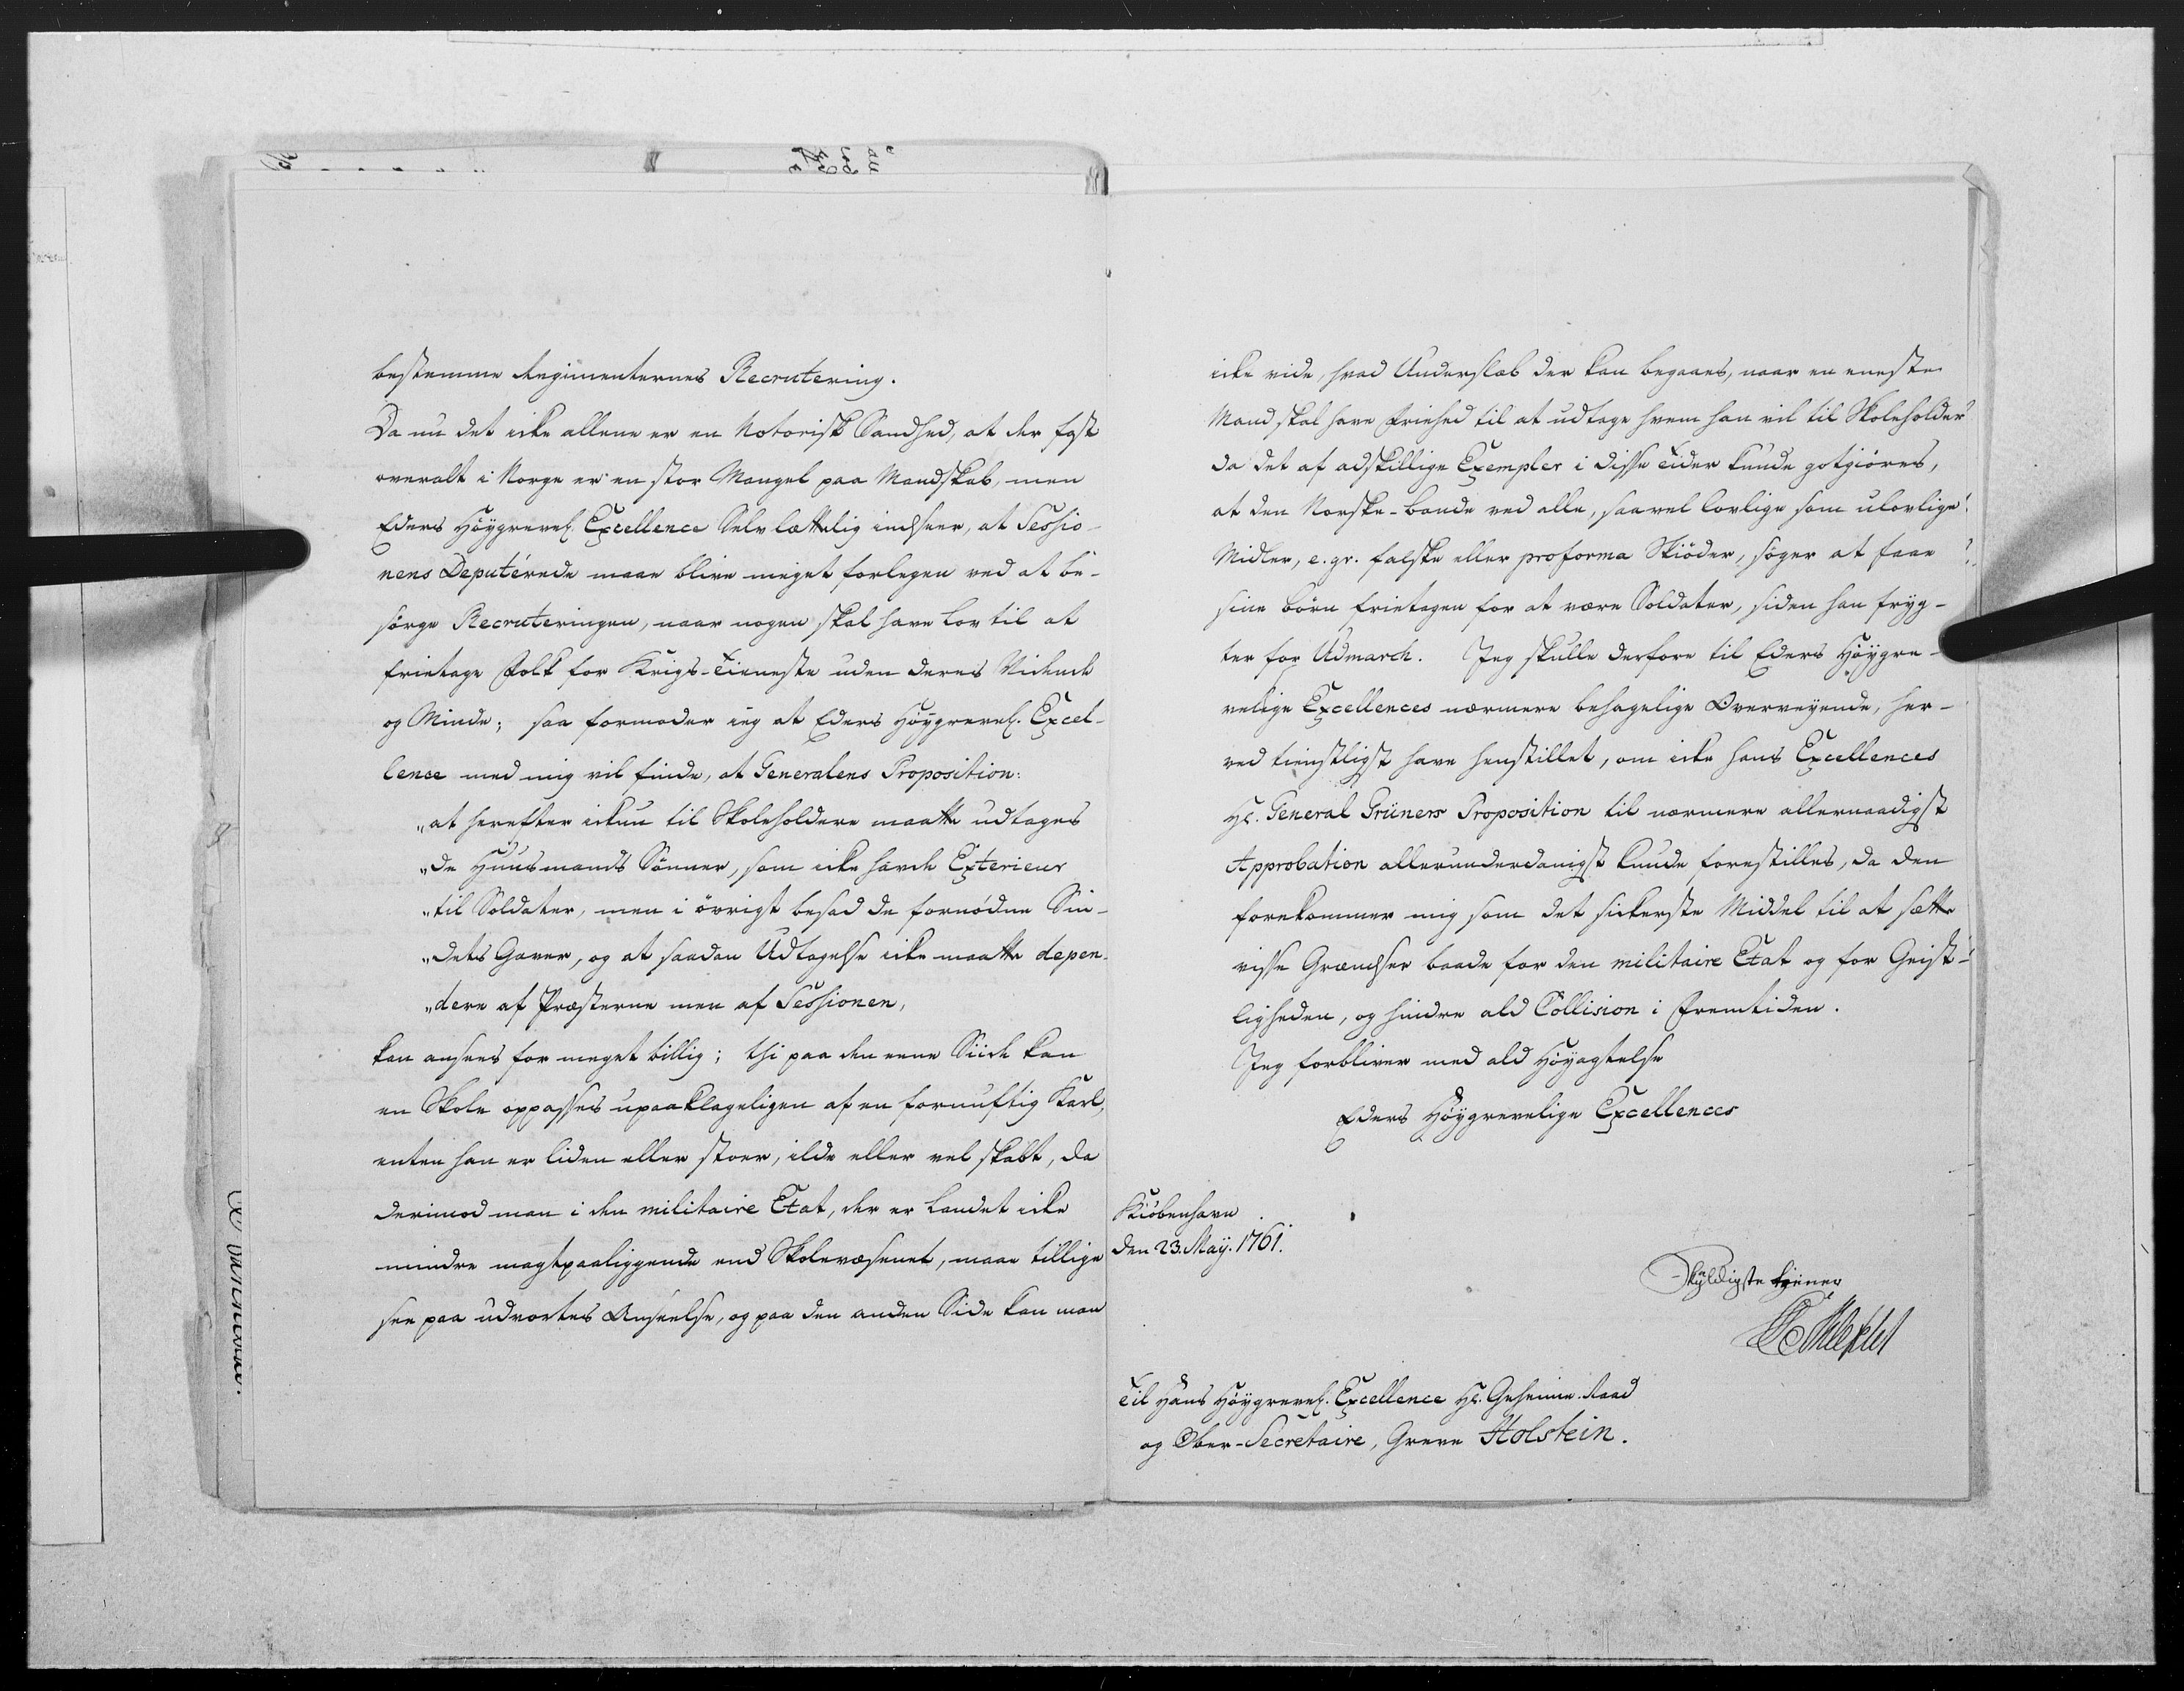 bestemme Regimenternes Recrutering.
Da nu det icke allene er en Notorisk Sandhed, at der fast
overalt i Norge er en stor Mangel paa Mandskab, men
Eders Höygrevel. Excellence Selv lættelig indseer, at Sessio-
nens Deputérede maae blive meget forlegen ved at be-
sörge Recruteringen, naar nogen skal have Lov til at
frietage Folk for Krigs-Tieneste uden deres Vidende
og Minde; saa formoder ieg at Eders Höygrevel. Excel-
lence med mig vil finde, at Generalens Proposition:
"at herefter ickun til Skoleholdere maatte udtages
"de Huusmands Sönner, som icke havde Exterieur
"til Soldater, men i övrigt besad de fornödne Sin-
"dets Gaver, og at saadan Udtagelse icke maatte depen-
"dere af Præsterne men af Sessionen,
kan ansees for meget billig; thi paa den eene Siide kan
en Skole oppasses upaaklageligen af en fornuftig Karl,
enten han er liden eller stoer, ilde eller vel skabt, da
derimod man i den militaire Etat, der er Landet icke
mindre magtpaaliggende end Skolevæsenet, maae tillige
see paa udvortes Anseelse, og paa den anden Side kan man
icke vide, hvad Underslæb der kan begaaes, naar en eneste
Mand skal have Friehed til at udtage hvem han vil til Skoleholder
da det af adskillige Exempler i disse Tider kunde gotgiöres,
at den Norske-Bonde ved alle, saavel lovlige som ulovlige
Midler, e. gr. falske eller proforma Skiöder, söger at faae
sine Börn frietagen for at være Soldater, siden han fryg-
ter for Udmarch. Jeg skulle derfore til Eders Höygre-
velige Excellences nærmere behagelige Overveyende, her-
ved tienstligst have henstillet, om icke hans Excellences
Hr. General Grüners Proposition til nærmere allernaadigst
Approbation allerunderdanigst kunde forestilles, da den
forekommer mig som det sickerste Middel til at sætte
visse Grændser baade for den militaire Etat og for Geist-
ligheden, og hindre ald Collision i Fremtiden.
Jeg forbliver med ald Höyagtelse
Eders Höygrevelige Excellences
Kiöbenhavn
den 23. May. 1761.
Skyldigste tiener
Til Hans Höygrevel. Excellence Hr. Geheime-Raad
og Ober-Secretaire, Greve Holstein.